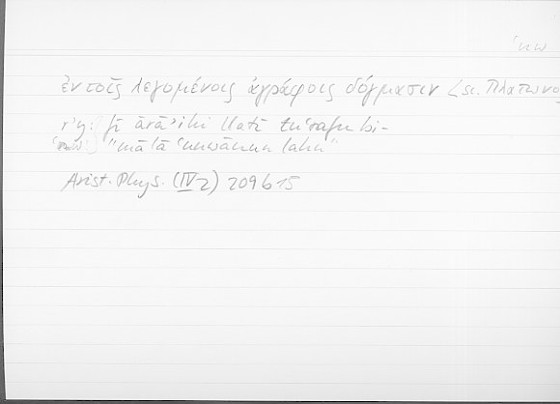 ʿnw
ἐν τοῖς λεγομένοις ἀγράφοις δόγμασιν <sc. Πλάτωνο
fī ārāʾihi llatī tuʿrafu bi-
"mā lā ʿunwānun lahu"
Arist. Phys. (IV 2) 209 b 15